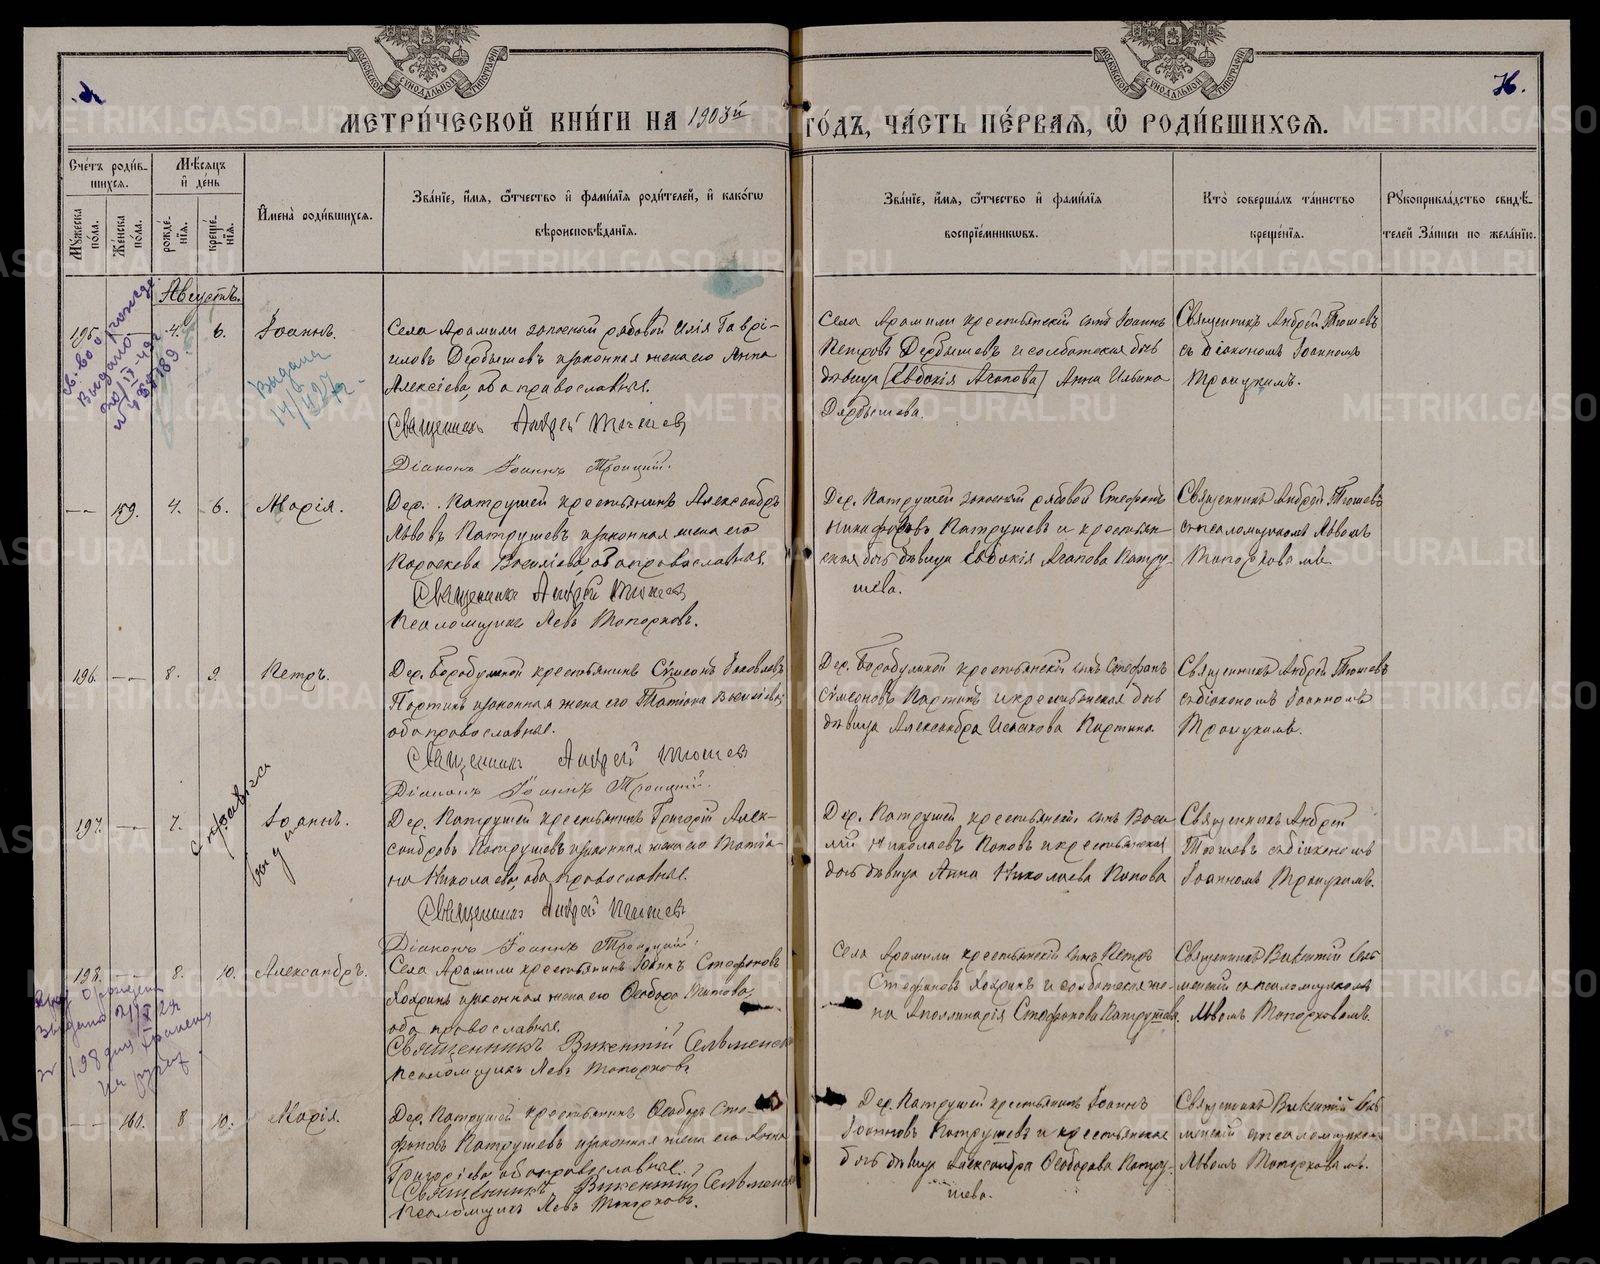 МЕТРИ́ЧЕСКОЙ КНИ́ГИ НА 1903й ГО́ДЪ, ЧА́СТЬ ПЕ́РВАЯ, Ѡ РОДИ́ВШИХСЯ.
Сче́тъ роди́вшихся.
Мѣ́сяцъ и҆ де́нь
И҆мена̀ роди́вшихся.
Зва́нїе, и҆́мя, ѻ҆́тчество и҆ фами́лїя роди́телей, и҆ како́гѡ
вѣроисповѣ́данїя.
Зва́нїе, и҆́мя, ѻ҆́тчество и҆ фами́лїя
воспрїе́мниковъ.
Кто̀ соверша́лъ та́инство
креще́нїя.
Рꙋкоприкла́дство свидѣ́-
телей За́писи по жела́нїю.
Мꙋ́жеска по́ла.
Же́нска по́ла.
рожде́нїя.
креще́нїя.
Августъ.
195. — 4. 6. Іоаннъ.
Села Арамили запасный рядовой Илія Гаврі-
иловъ Дербышевъ и законная жена его Анна
Алексіева, оба православные.
Священникъ Андрей Тюшевъ
Діаконъ Іоаннъ Троицкій.
Села Арамили крестьянскій сынъ Іоаннъ
Петровъ Дербышевъ и солдатская дочь
дѣвица Евдокія Агапова Анна Ильина
Дербышева.
Священникъ Андрей Тюшевъ
съ діакономъ Іоанномъ
Троицкимъ.
Выдана
— 159. 4. 6. Марія.
Дер. Патрушей крестьянинъ Александръ
Львовъ Патрушевъ и законная жена его
Параскева Василіева, оба православные.
Священникъ Андрей Тюшевъ
Псаломщикъ Левъ Топорковъ.
Дер. Патрушей запасный рядовой Стефанъ
Никифоровъ Патрушевъ и крестьян-
ская дочь дѣвица Евдокія Агапова Патру-
шева.
Священникъ Андрей Тюшевъ
съ псаломщикомъ Львомъ
Топорковымъ.
196. — 8. 9. Петръ.
Дер. Бородулиной крестьянинъ Сѵмеонъ Іаковлевъ
Партинъ и законная жена его Татіана Василіева,
оба православные.
Священникъ Андрей Тюшевъ
Діаконъ Іоаннъ Троицкій.
Дер. Бородулиной крестьянскій сынъ Стефанъ
Сѵмеоновъ Партинъ и крестьянская дочь
дѣвица Александра Исаакова Партина.
Священникъ Андрей Тюшевъ
съ діакономъ Іоанномъ
Троицкимъ.
197. — 7. Іоаннъ.
Дер. Патрушей крестьянинъ Григорій Алек-
сандровъ Патрушевъ и законная жена его Татіа-
на Николаева, оба православные.
Священникъ Андрей Тюшевъ
Діаконъ Іоаннъ Троицкій.
Дер. Патрушей крестьянскій сынъ Васи-
лій Николаевъ Поповъ и крестьянская
дочь дѣвица Анна Николаева Попова
Священникъ Андрей
Тюшевъ съ діакономъ
Іоанномъ Троицкимъ.
198. — 8. 10. Александръ.
Села Арамили крестьянинъ Стефановъ
и законная жена его Ѳеодора Титова,
оба православные.
Священникъ Викентій Сельменскій
Псаломщикъ Левъ Топорковъ
Села Арамили крестьянскій сынъ Петръ
Стефановъ и солдатская же-
на Аполлинарія Стефанова Патрушева.
Священникъ Викентій Сель-
менскій съ псаломщикомъ
Львомъ Топорковымъ.
— 160. 8 10. Марія.
Дер. Патрушей крестьянинъ Ѳеодоръ Сте-
фановъ Патрушевъ и законная жена его Анна
Григоріева, оба православные.
Священникъ Викентій Сельменскій
Псаломщикъ Левъ Топорковъ.
Дер. Патрушей крестьянинъ Іоаннъ
Іоанновъ Патрушевъ и крестьянская
дочь дѣвица Александра Ѳеодорова Патру-
шева.
Священникъ Викентій Сель-
менскій съ псаломщикомъ
Львомъ Топорковымъ.
METRIKI.GASO-URAL.RU